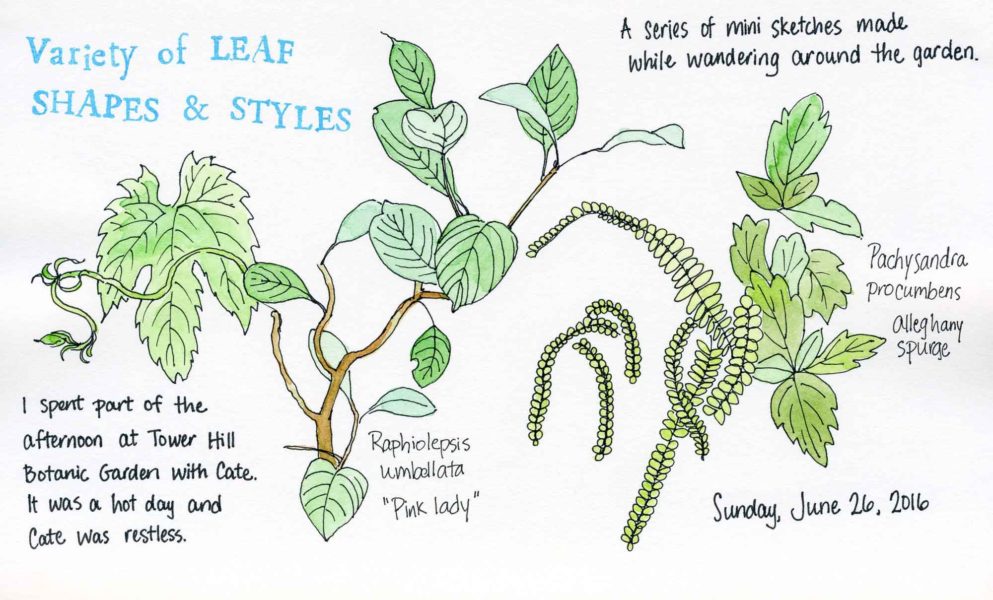 Variety of LEAF
SHAPES & STYLES
A series of mini sketches made
while wandering around the garden.
Pachysandra
procumbens
alleghany
spurge
I spent part of the
afternoon at Tower Hill
Botanic Garden with Cate.
It was a hot day and
Cate was restless.
Raphiolepsis
umbellata
"Pink lady"
Sunday, June 26, 2016